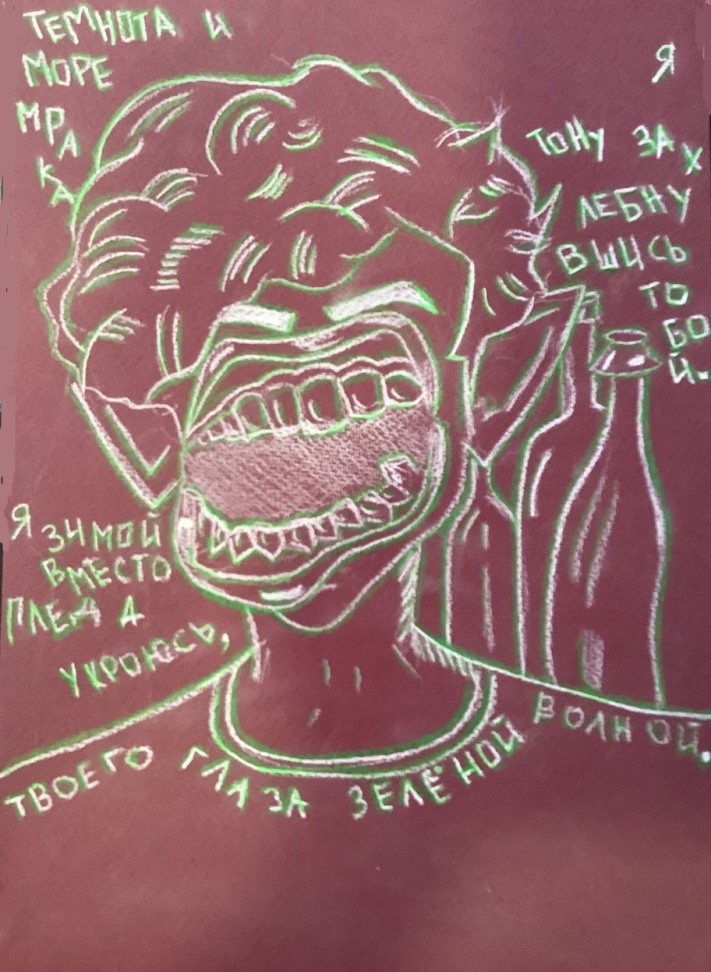 ТЕМНОТА И
МОРЕ
МРА
КА
Я
ТОНУ ЗА
Х
ЛЕБНУ
ВШИСЬ
ТО
БО
Й.
Я ЗИМОЙ
ВМЕСТО
ПЛЕДА
УКРОЮСЬ,
ТВОЕГО ГЛАЗА ЗЕЛЁНОЙ ВОЛНОЙ.